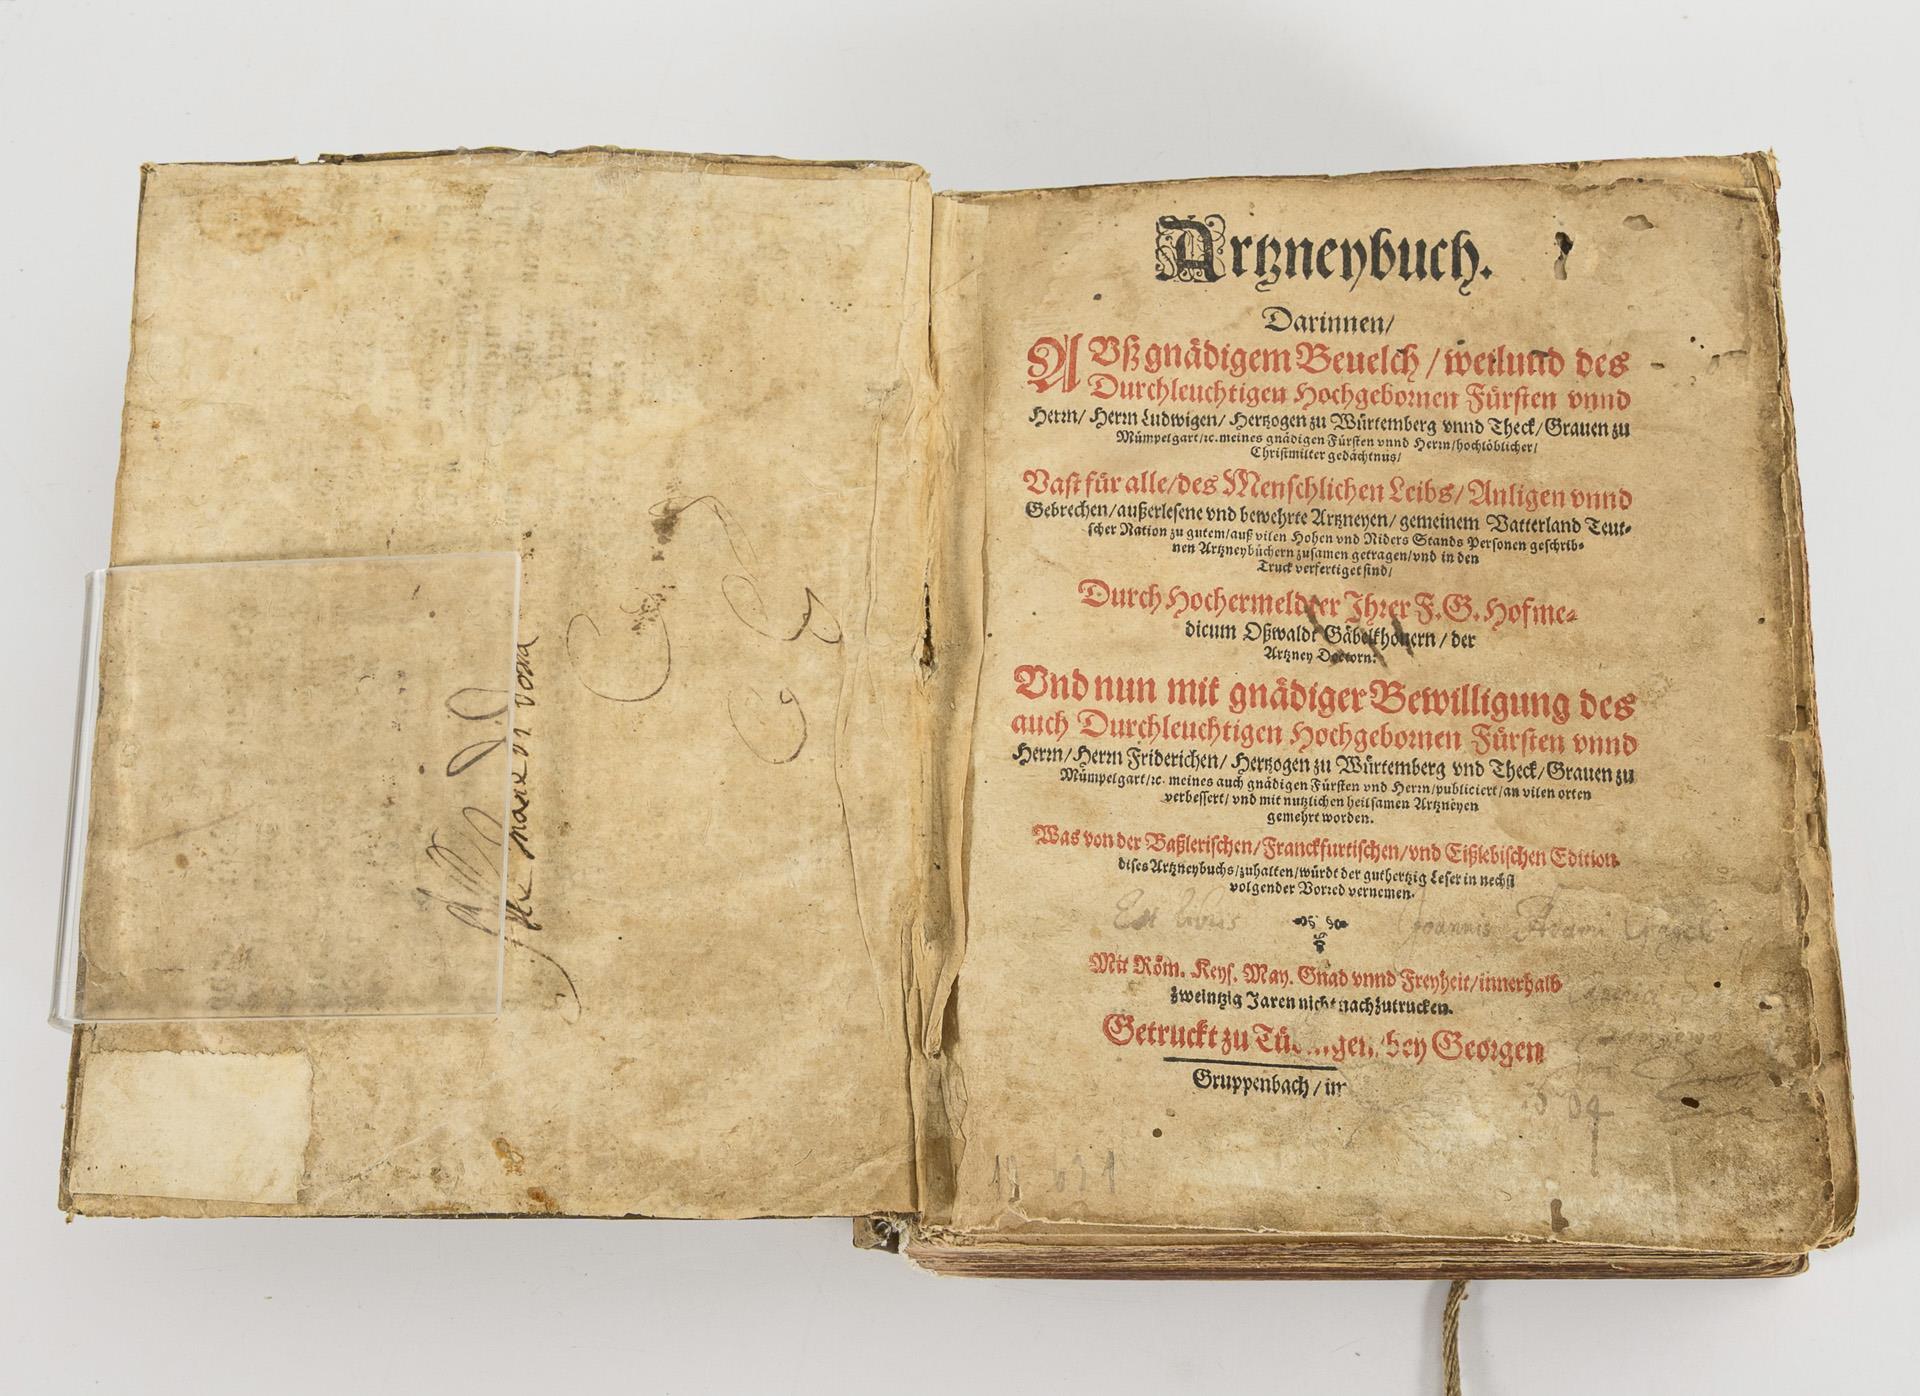 Artzneybuch.
Darinnen/
AVß gnädigem Beuelch/ weilund des
Durchleuchtigen Hochgebornen Fürsten vnnd
Herrn/ Herrn Ludwigen/ Hertzogen zu Würtemberg vnnd Theck/ Grauen zu
Mümpelgart/ ꝛc. meines gnädigen Fürsten vnnd Herrn/ hochlöblicher/
Christmilter gedächtnus/
Vast für alle/ des Menschlichen Leibs/ Anligen vnnd
Gebrechen/ außerlesene vnd bewehrte Artzneyen/ gemeinem Vatterland Teut-
scher Nation zu gutem/ auß vilen Hohen vnd Niders Stands Personen geschrib-
nen Artzneybüchern zusamen getragen/ vnd in den
Truck verfertiget sind/
Durch Hochermeldter Ihrer F. G. Hofme-
dicum Oßwaldt Gäbelkhouern/ der
Artzney Doctorn.
Vnd nun mit gnädiger Bewilligung des
auch Durchleuchtigen Hochgebornen Fürsten vnnd
Herrn/ Herrn Friderichen/ Hertzogen zu Würtemberg vnd Theck/ Grauen zu
Mümpelgart/ ꝛc. meines auch gnädigen Fürsten vnd Herrn/ publiciert/ an vilen orten
verbessert/ vnd mit nutzlichen heilsamen Artzneyen
gemehrt worden.
Was von der Baßlerischen/ Franckfurtischen/ vnd Eißlebischen Edition
dises Artzneybuchs/ zuhalten/ würdt der guthertzig Leser in nechst
volgender Vorred vernemen.
Joannis
Mit Röm. Keys. May. Gnad vnnd Freyheit/ innerhalb
zweintzig Jaren nicht nachzutrucken.
Getruckt zu Tü...gen/ bey Georgen
Gruppenbach/ im